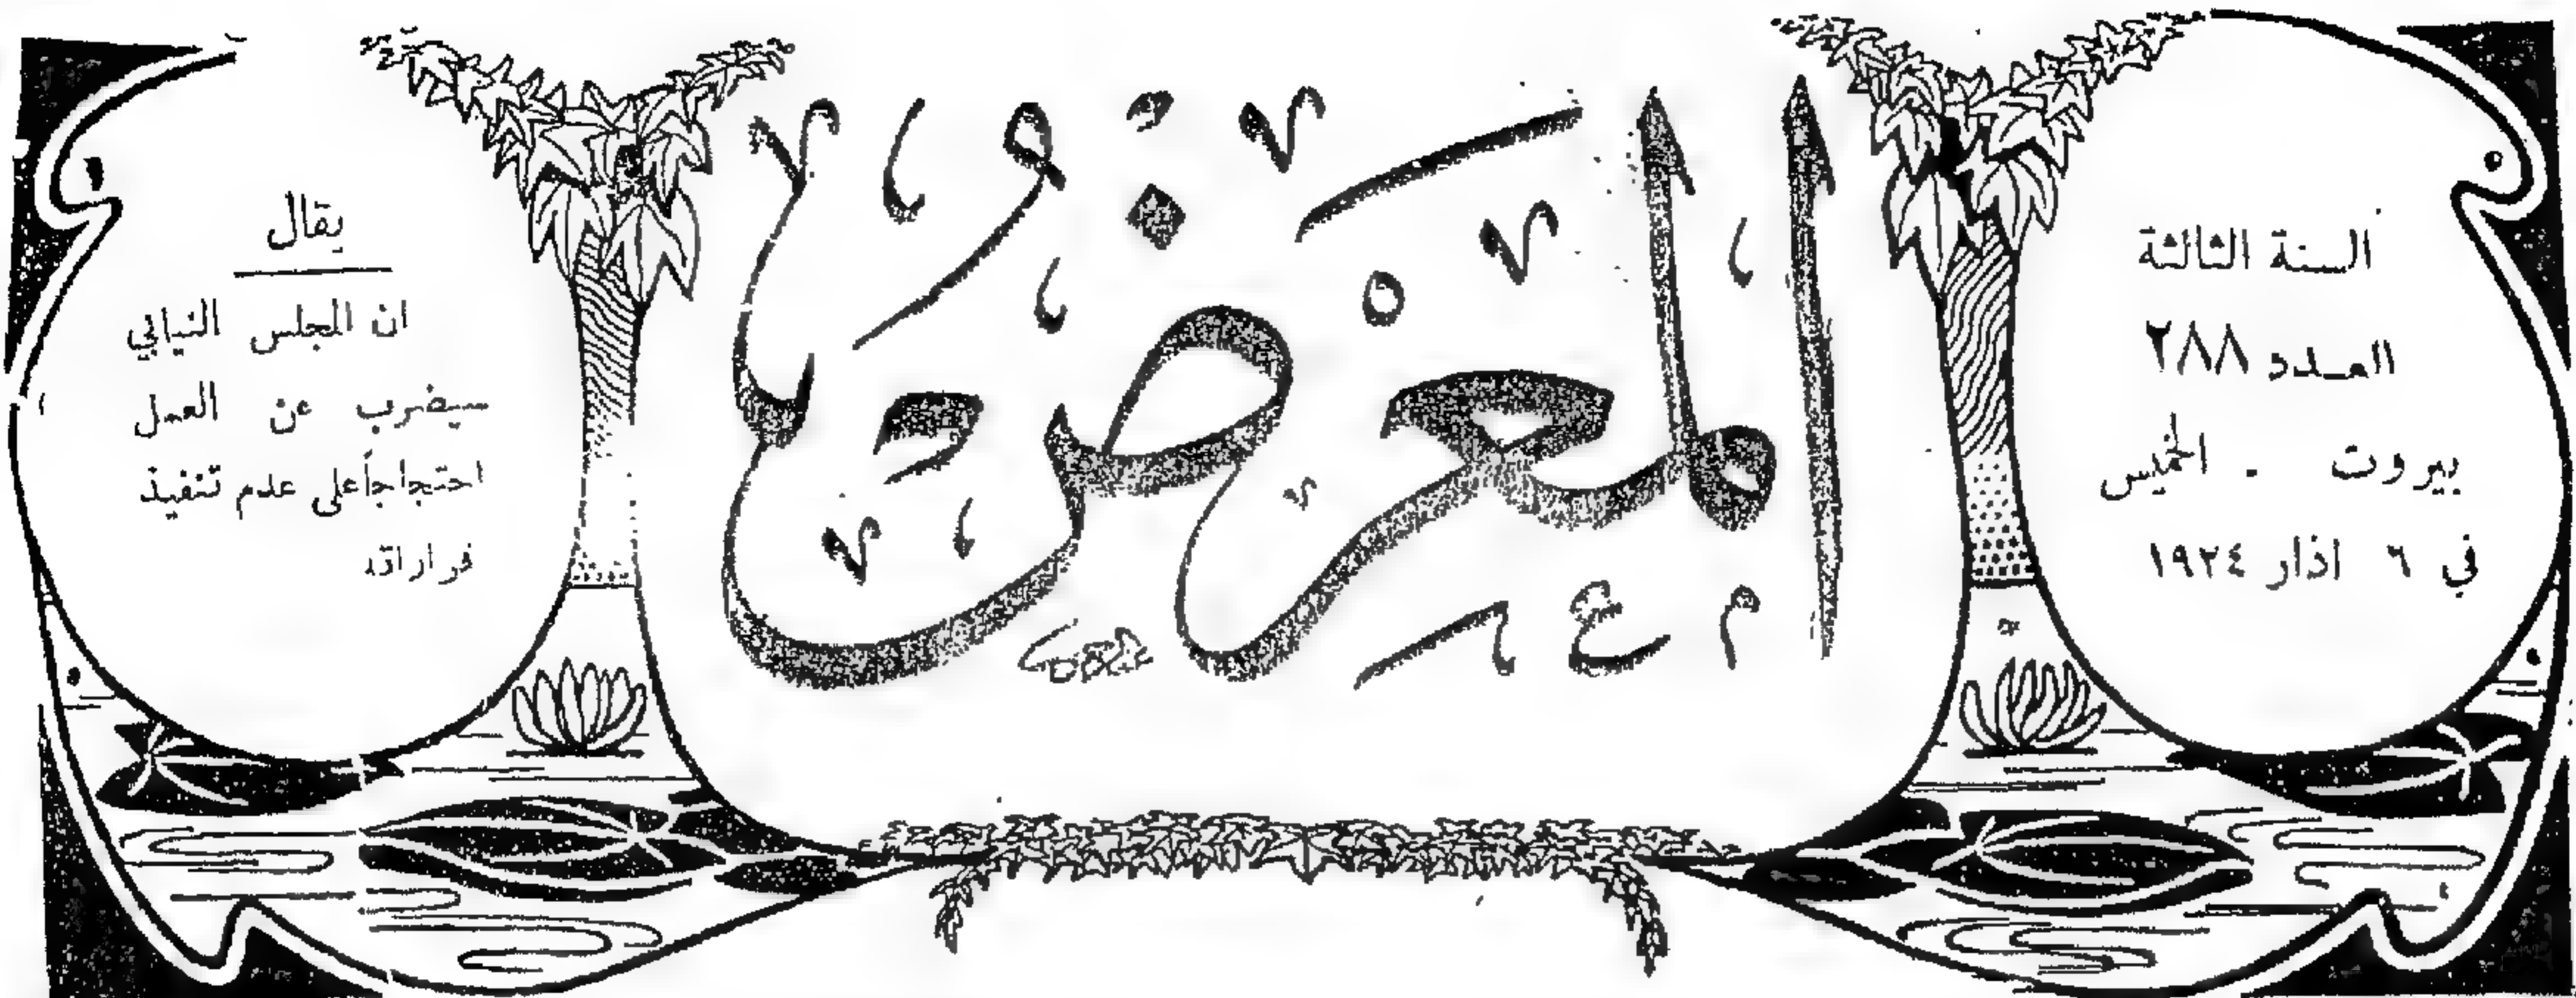 السنة الثالثة
العدد ٢٨٨
بيروت . الخميس
في ٦ اذار ١٩٢٤
المعرض
يقال
ان المجلس النيابي
سيضرب عن العمل
احتجاجاً على عدم تنفيذ
قراراته